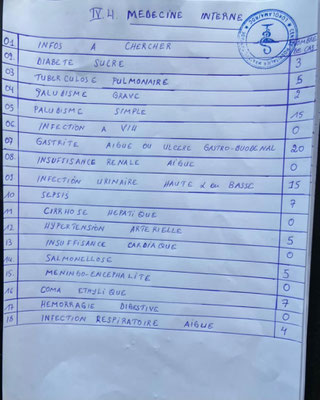 IV.4 MEDECINE INTERNE
01 INFOS A CHERCHER
02. DIABETE SUCRE 3
03 TUBERCULOSE PULMONAIRE 5
04 PALUDISME GRAVE 2
05 PALUDISME SIMPLE 15
06 INFECTION A VIH 0
07 GASTRITE AIGUE OU ULCERE GASTRO-DUODENAL 20
08 INSUFFISANCE RENALE AIGUE 0
09 INFECTION URINAIRE HAUTE OU BASSE 15
10 SEPSIS 7
11 CIRRHOSE HEPATIQUE 0
12 HYPERTENSION ARTERIELLE 5
13 INSUFFISANCE CARDIAQUE 0
14 SALMONELLOSE 5
15. MENINGO-ENCEPHALITE 0
16 COMA ETHYLIQUE 7
17 HEMORRAGIE DIGESTIVE 0
18 INFECTION RESPIRATOIRE AIGUE 4